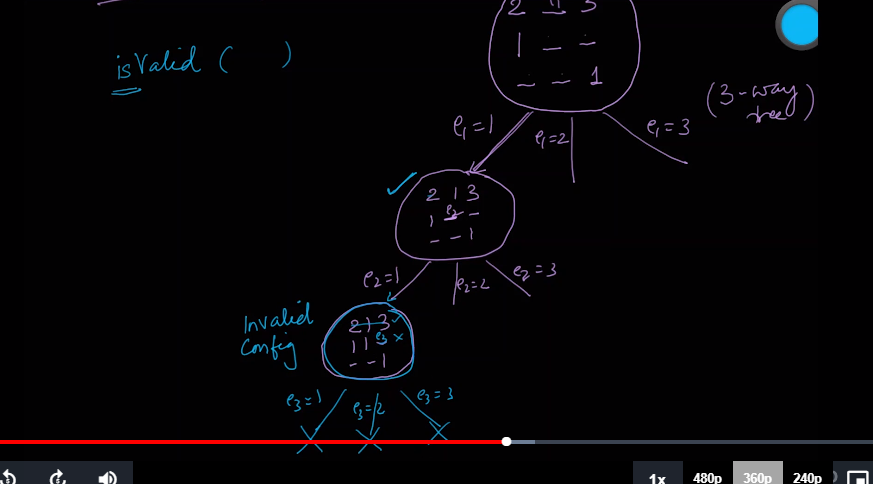 2 3
isValid ( )
1 _ _
_ _ 1
(3-way
tree)
e₁=1
e₁=2
e₁=3
2 1 3
1 e₂ _
_ _ 1
e₂=1
e₂=2
e₂=3
Invalid
Config
2 1 3
1 1 e₃
_ _ 1
e₃=1
e₃=2
e₃=3
1x
480p
360p
240p